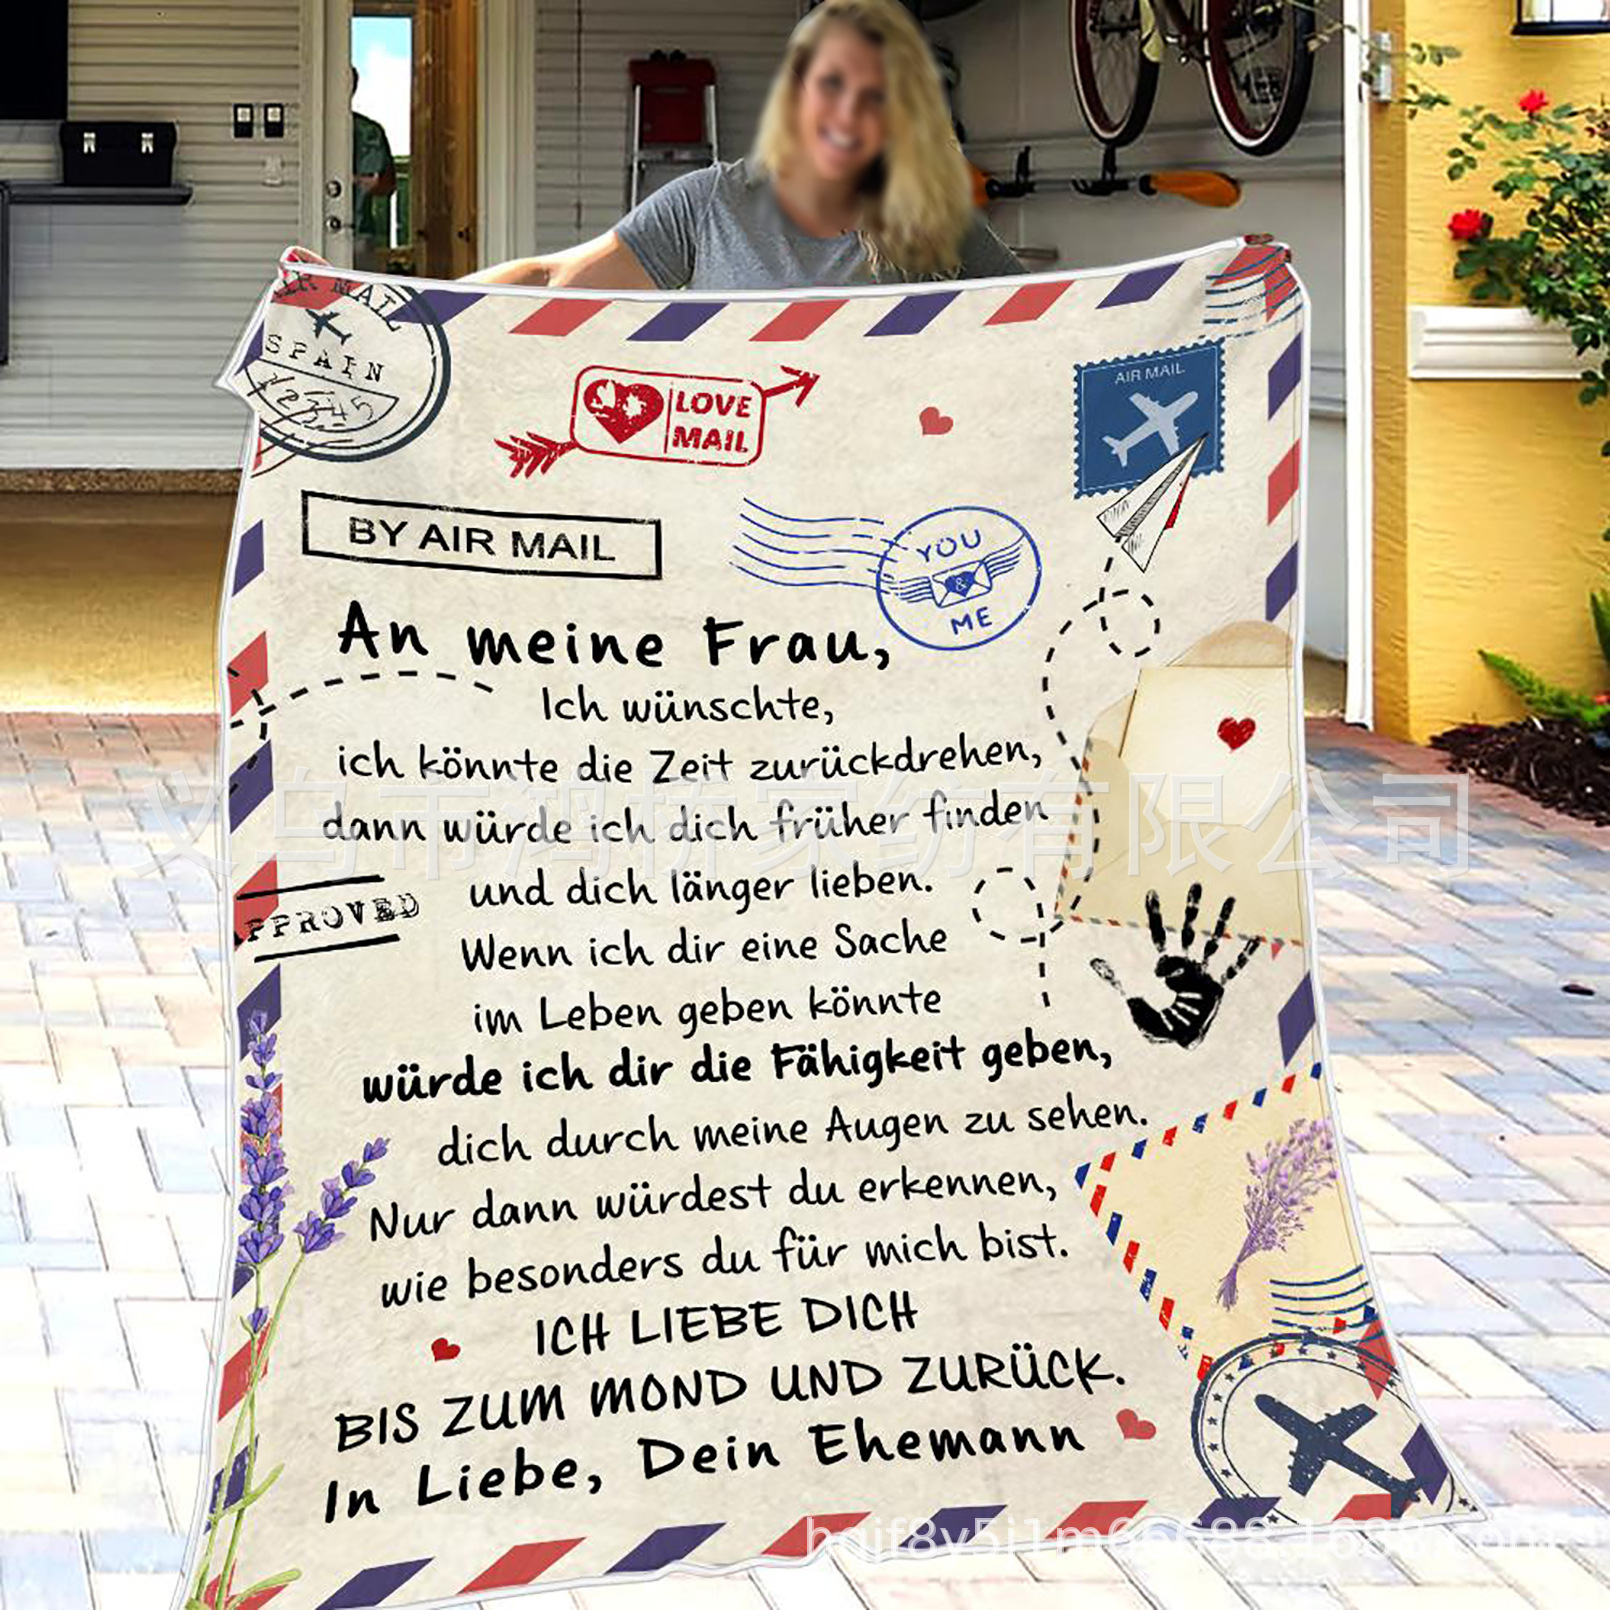 AIR MAIL
SPAIN
12345
LOVE
MAIL
AIR MAIL
BY AIR MAIL
YOU
&
ME
An meine Frau,
Ich wünschte,
ich könnte die Zeit zurückdrehen,
dann würde ich dich früher finden
und dich länger lieben.
APPROVED
Wenn ich dir eine Sache
im Leben geben könnte
würde ich dir die Fähigkeit geben,
dich durch meine Augen zu sehen.
Nur dann würdest du erkennen,
wie besonders du für mich bist.
ICH LIEBE DICH
BIS ZUM MOND UND ZURÜCK.
In Liebe, Dein Ehemann
义乌市鸿桥家纺有限公司